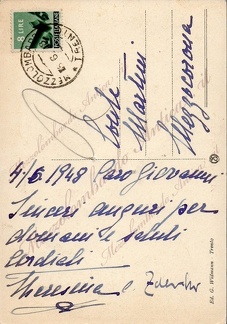 8 LIRE
MEZZOLOMBARDO
TRENTO
Conte
Martini
Mezzocorona
4/6 1948 Caro Giovanni
Sinceri auguri per
domani e saluti
cordiali
Theresina e
Ed. G. Widmann Trento